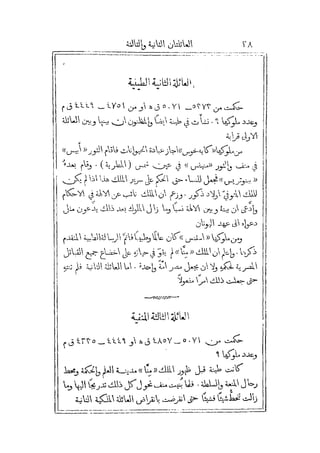 ٣٨ العائلتان الثانية والثالثة
العائلة الثانية الطينية
حكمت من ٥٢٧٣ — ٥٠٧١ ق ھ او من ٤٧٥١ — ٤٤٤٩ ق م
وعدد ملوكها ٩. نشأت في طينة ايضًا والمظنون ان بينها وبين العائلة
الاولى قرابة
من ملوكها «كايه خوس» اجاز عبادة الحيوانات فاقام الثور «أبيس»
في منف والثور «منيفس» في عين شمس (المطرية). وقام بعدهُ
«بينوتريس» فجعل للنساء حق الحكم على سرير الملك هذا اذا لم يكن
للملك المتوفي اولاد ذكور. وزعم ان الملك نائب عن الآلهة في الاحكام
وادَّعى ان بينه وبين الآلهة نسبًا وما زال الملوك بعد ذلك يدعون مثل
دعواهُ الى عهد اليونان
ومن ملوكها «» كان عالمًا وطبيبًا فاتمَّ الرسالة الطبية المتقدم
ذكرها. واعلم ان الملك «مِنَا» لم يقوَ في حياته على اخضاع جميع القبائل
المصرية لحكمهِ ولا ان يجعل مصر أُمة واحدة. اما العائلة الثانية فلم تنتهِ
حتى جعلت ذلك امرًا مفعولًا
العائلة الثالثة المنفية
حكمت من ٥٠٧١ — ٤٨٥٧ ق ھ او ٤٤٤٩ — ٤٢٣٥ ق م
وعدد ملوكها ٩
كانت طينة قبل ظهور الملك «مِنَا» مدينة العلم والحكمة ومحط
رجال المنعة والسلطة. فلما بُنيت منف تحول كل ذلك تدريجًا اليها وما
زالت تنحطُّ شيئًا فشيئًا حتى انقرضت بانقراض العائلة الملكية الثانية